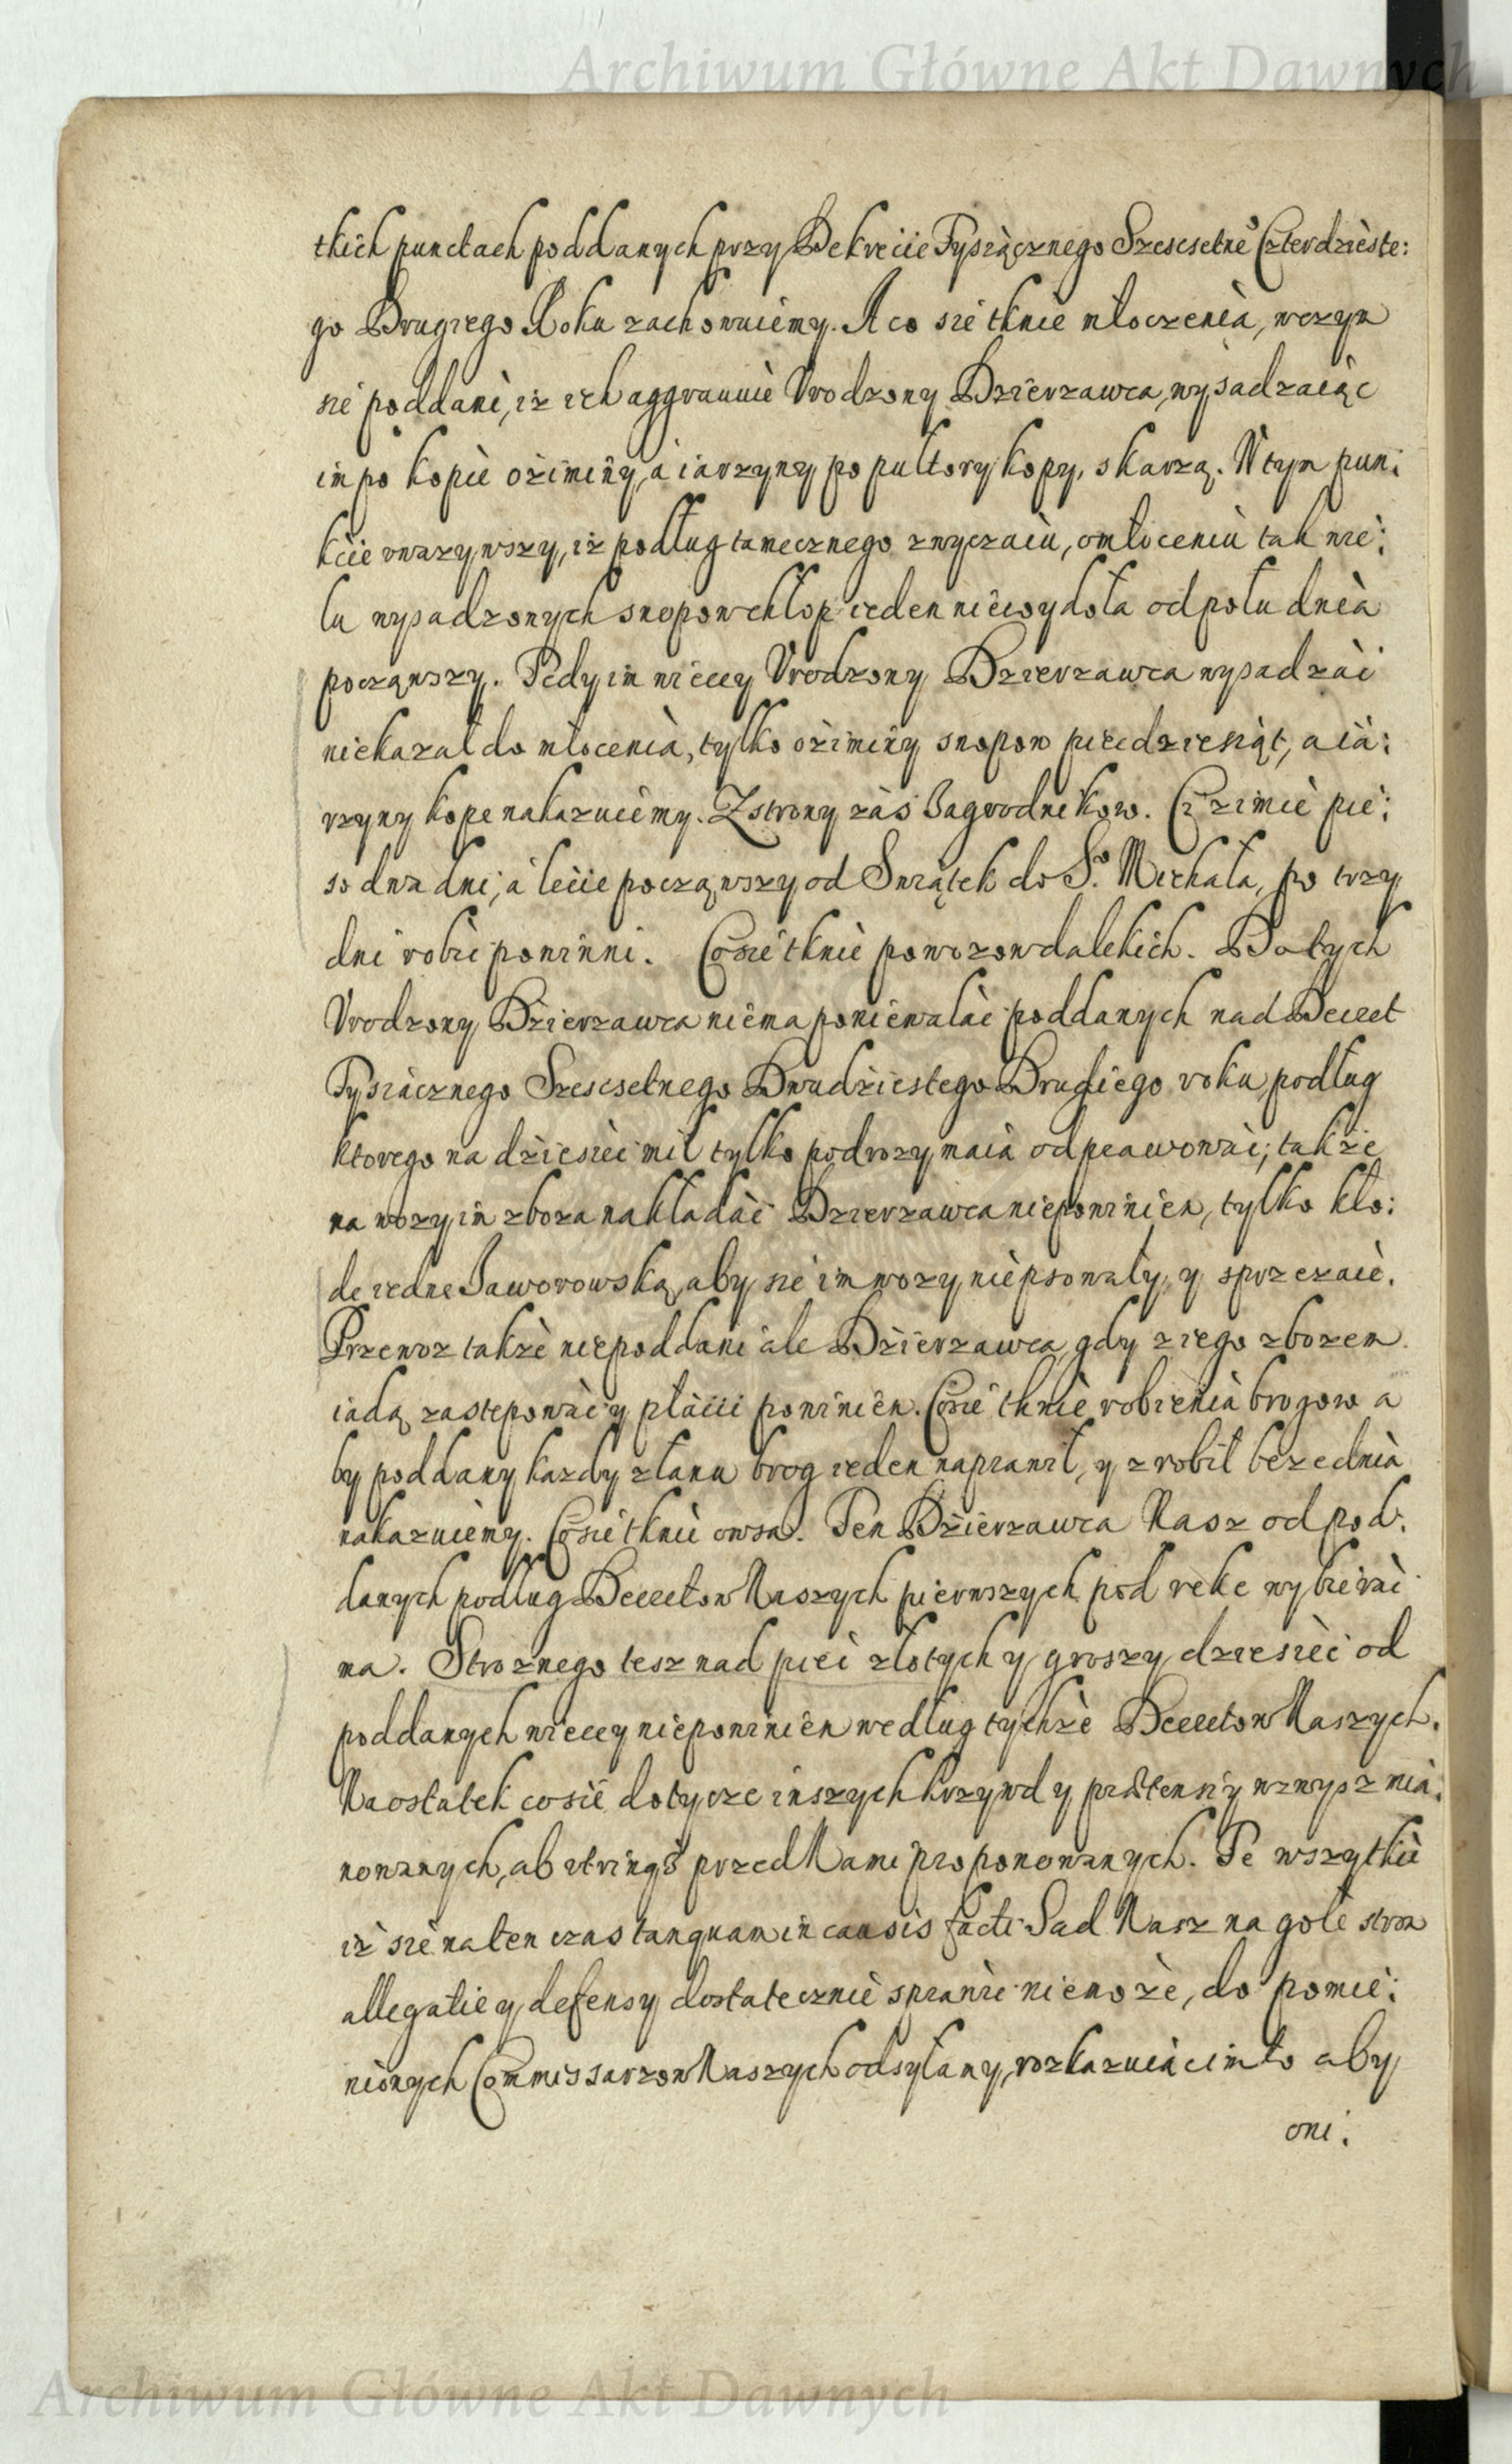 Archiwum Główne Akt Dawnych
tkich punctach poddanych przy Dekrecie Tysiącznego Szescsetne° Czterdzieste:
go Drugiego Roku zachowuiemy. A co sie tknie młoczenia, wczym
sie poddani, iz ich aggrauuie Vrodzony Dzierzawca, wysadzaiąc
im po kopie oziminy, a iarzyny po pułtory kopy, skarzą. W tym pun:
kcie vwazywszy, iz podług tamecznego zwyczaiu, omłoceniu tak wie:
lu wysadzonych snopow chłop ieden niewydoła od południa
począwszy. Tedy im wiecey Vrodzony Dzierzawca wysadzać
niekazał do młocenia, tylko oziminy snopow piecdziesiąt, a ia:
rzyny kope nakazuiemy. Z strony zaś Zagrodnikow. Ci zimie pie:
so dwa dni, a lecie począwszy od Swiątek do S° Michała, po trzy
dni robic powinni. Co sie tknie powozow dalekich. Do tych
Vrodzony Dzierzawca niema poniewalać poddanych nad Decret
Tysiącznego Szescsetnego Dwudziestego Drugiego roku, podług
ktorego na dziesieć mil tylko podrozy maia odprawować; takze
na wozy im zboza nakładać Dzierzawca niepowinien, tylko kło:
de iedne Jaworowską, aby sie im wozy niepsowały, y sprzezaie.
Przewoz takze niepoddani ale Dzierzawca, gdy z iego zbozem
iadą zastepować y płacić powinien. Co sie tknie robienia brogow a
by poddany kazdy z łanu brog ieden naprawił, y zrobił beze dnia
nakazuiemy. Co sie tknie owsa. Ten Dzierzawca Nasz od pod:
danych podług Decretow Naszych pierwszych pod reke wybierać
ma. Stroznego tesz nad pieć złotych y groszy dziesieć od
poddanych wiecey niepowinien według tychze Decretow Naszych.
Naostatek co sie dotycze inszych krzywd y prætensiy wzwysz mia:
nowanych, ab utrinq3 przed Nami proponowanych. Te wszytkie
iz sie na ten czas tanquam in causis facti Sad Nasz na gołe stron
allegatie y defensy dostatecznie sprawic niemoze, do pomie:
nionych Commissarzow Naszych odsyłamy, rozkazuiac im to aby
oni:
Archiwum Główne Akt Dawnych